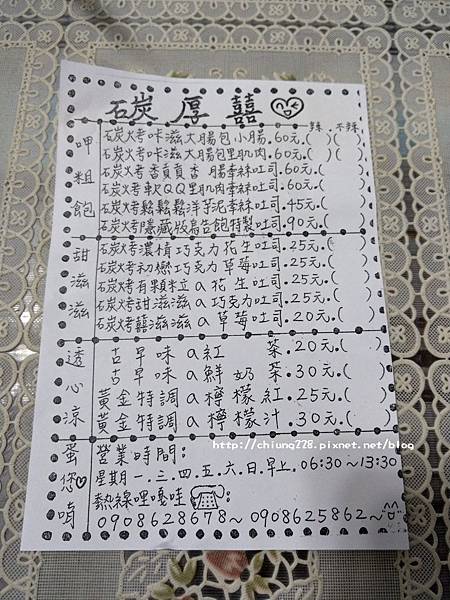 石炭 厚 囍
辣 不辣
呷粗飽
石炭火考咔滋大腸包小腸.60元.( )( )
石炭火考咔滋大腸包里肌肉.60元.( )( )
石炭火考香貢貢香腸季絲吐司.60元.( )
石炭火考軟QQ里肌肉季絲吐司.60元.( )
石炭火考鬆鬆鬆洋芋泥季絲吐司.45元.( )
石炭火考隱藏版爲告飽特製吐司.90元.( )
甜滋滋
石炭火考濃情巧克力花生吐司.25元.( )
石炭火考初戀巧克力草莓吐司.25元.( )
石炭火考有顆粒a花生吐司.25元.( )
石炭火考甜滋滋a巧克力吐司.25元.( )
石炭火考囍滋滋a草莓吐司.20元.( )
透心涼
古早味a紅 茶.20元.( )
古早味a鮮奶茶.30元.( )
黃金特調a檸檬紅.25元.( )
黃金特調a檸檬汁.30元.( )
http://chiung228.pixnet.net/blog
蛋您唷
營業時間:
星期一.三.四.五.六.日.早上.06:30~13:30
熱線哩嘎哇:
0908628678~0908625862~